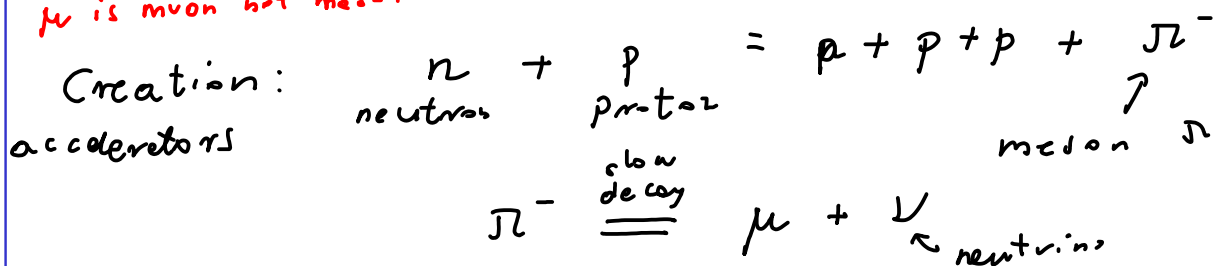 μ is muon not
Creation: n + p = p + p + p + π⁻
neutron proton
accelerators meson π
slow
decay
π⁻ = μ + ν
neutrino